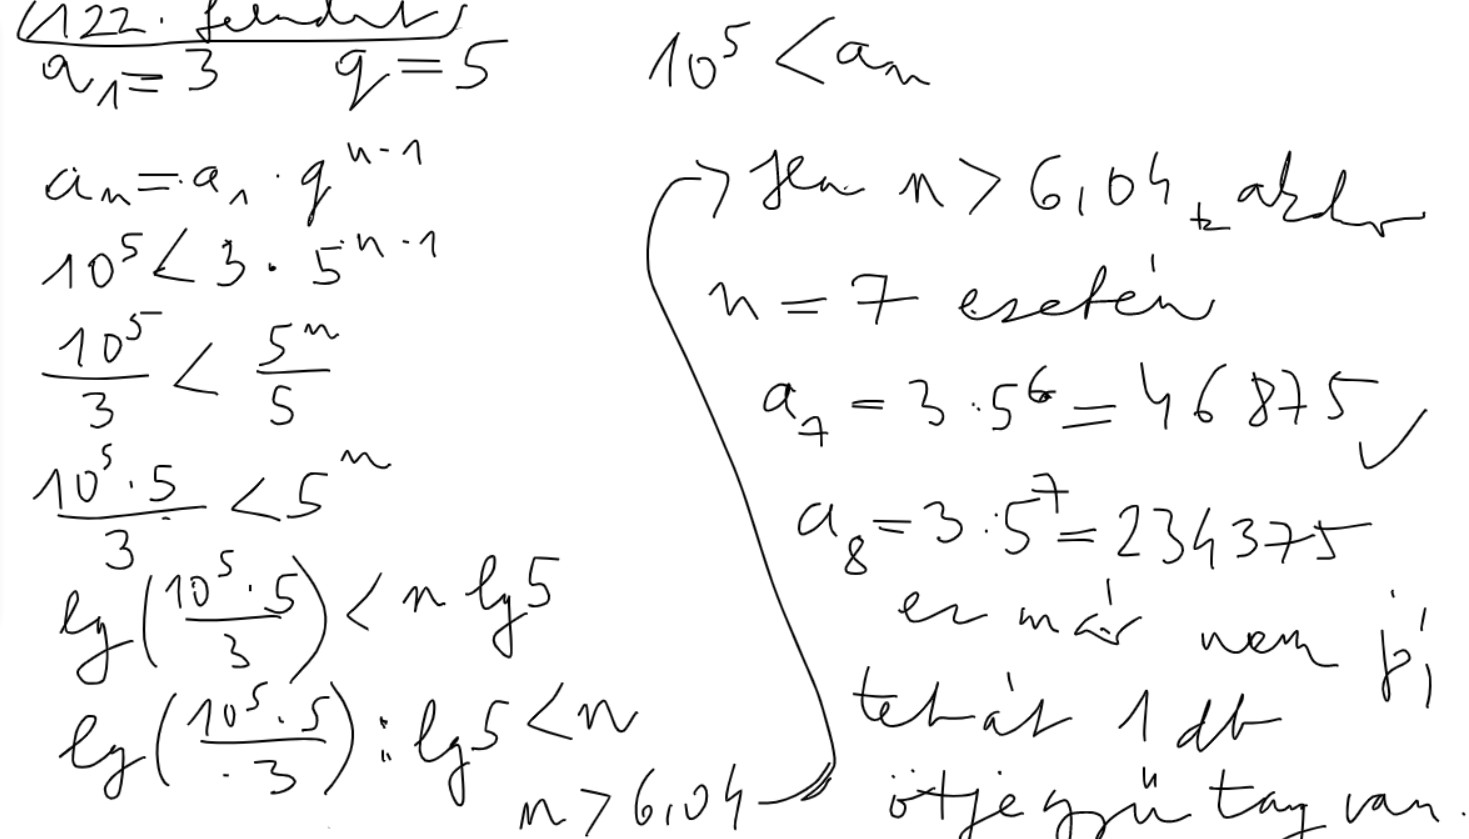 122. feladat
a₁ = 3 q = 5
aₙ = a₁ · q^(n-1)
10⁵ < 3 · 5^(n-1)
10⁵/3 < 5ⁿ/5
10⁵·5/3 < 5ⁿ
lg(10⁵·5/3) < n lg5
lg(10⁵·5/3) : lg5 < n
n > 6,04
10⁵ < aₙ
n > 6,04, akkor
n = 7 esetén
a₇ = 3 · 5⁶ = 46875 ✓
a₈ = 3 · 5⁷ = 234375
ez már nem jó,
tehát 1 db
ötjegyű tag van.